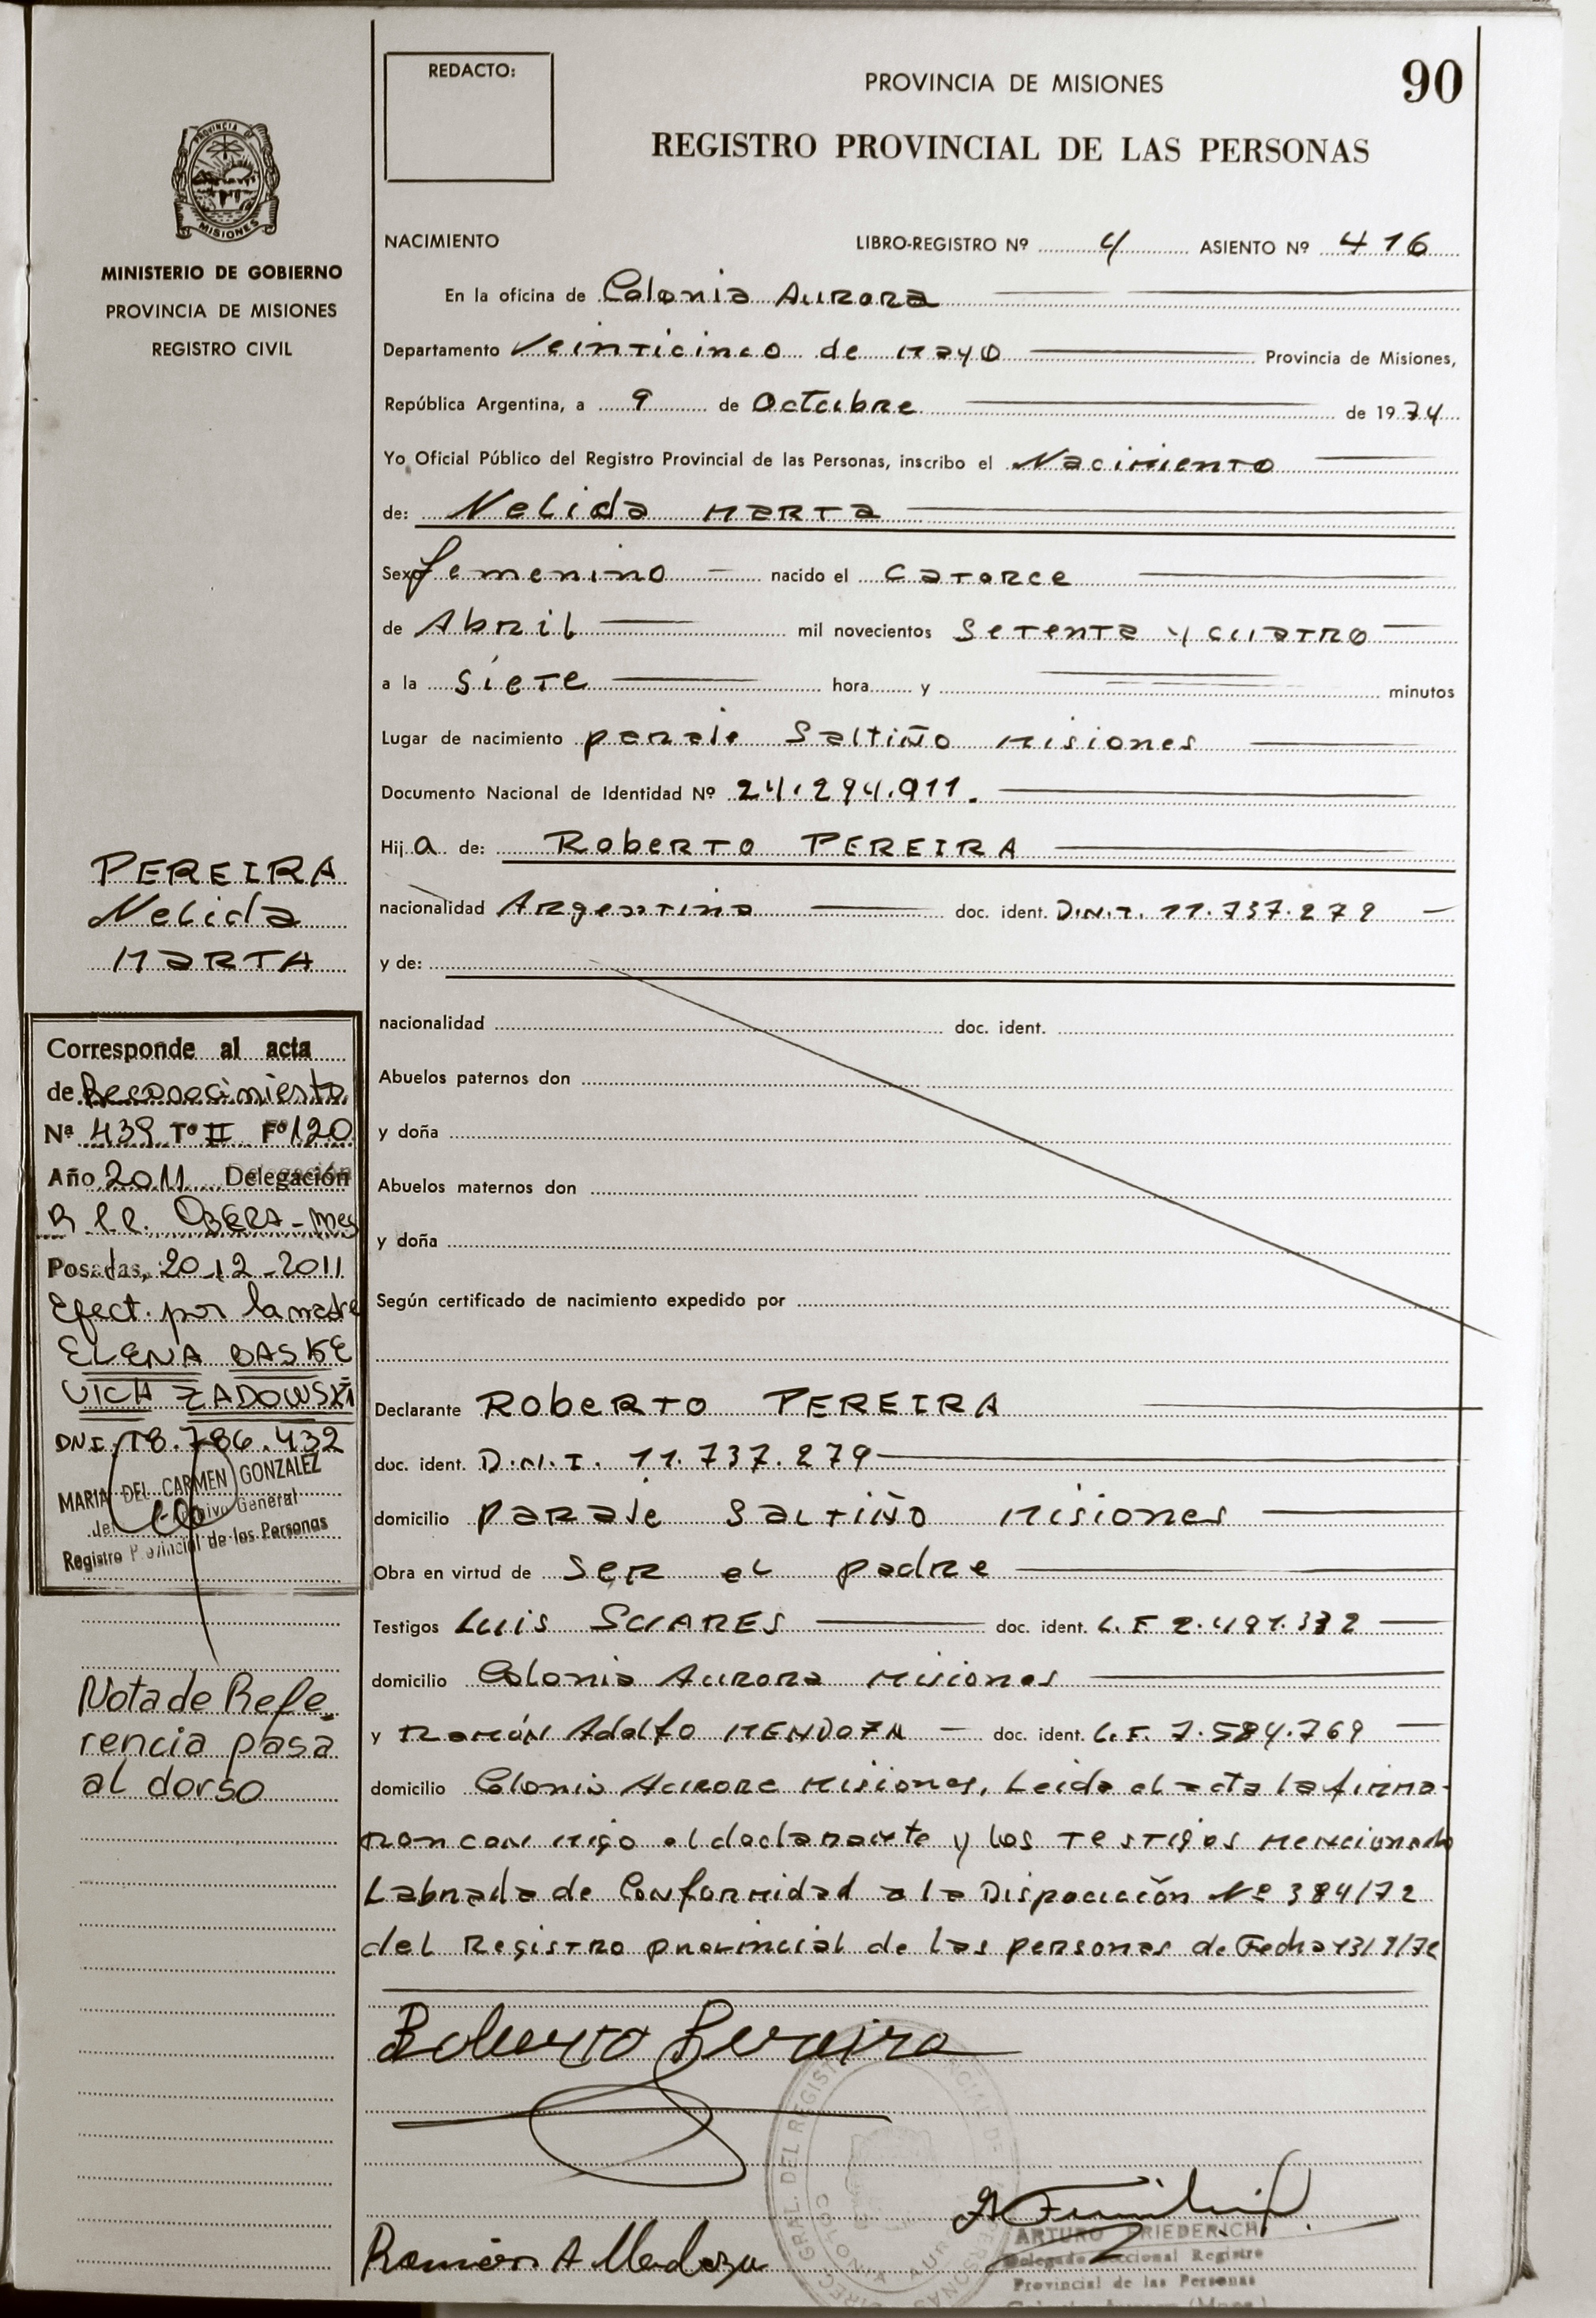 REDACTO:
PROVINCIA DE MISIONES
90
REGISTRO PROVINCIAL DE LAS PERSONAS
PROVINCIA DE
MISIONES
MINISTERIO DE GOBIERNO
PROVINCIA DE MISIONES
REGISTRO CIVIL
NACIMIENTO LIBRO-REGISTRO Nº 4 ASIENTO Nº 416
En la oficina de Colonia Aurora
Departamento Veinticinco de Mayo Provincia de Misiones,
República Argentina, a 9 de Octubre de 1974
Yo Oficial Público del Registro Provincial de las Personas, inscribo el Nacimiento
de: Nelida Marta
Sexo femenino nacido el Catorce
de Abril mil novecientos Setenta y cuatro
a la siete hora y minutos
Lugar de nacimiento paraje Saltiño Misiones
Documento Nacional de Identidad Nº 24.294.911.
Hija de: Roberto PEREIRA
nacionalidad Argentina doc. ident. D.N.I. 11.737.279
y de:
nacionalidad doc. ident.
Abuelos paternos don
y doña
Abuelos maternos don
y doña
Según certificado de nacimiento expedido por
Declarante Roberto PEREIRA
doc. ident. D.N.I. 11.737.279
domicilio paraje Saltiño Misiones
Obra en virtud de ser el padre
Testigos Luis SUARES doc. ident.
domicilio Colonia Aurora Misiones
y Ramón Adolfo MENDOZA doc. ident. 7.584.769
domicilio Colonia Aurora Misiones, Leida el acta la firma-
ron con migo el declarante y los testigos mencionado
Labrada de Conformidad a la Disposición Nº 384/72
del Registro provincial de las personas de Fecha
Roberto Pereira
Ramón A Mendoza
ARTURO FRIEDERICH
Delegado Seccional Registro
Provincial de las Personas
PEREIRA
Nelida
MARTA
Corresponde al acta
de Reconocimiento
Nª 439 Tº II Fº 120
Año 2011 Delegación
OBERA - Mnes
Posadas, 20-12-2011
Efect. por la madre
ELENA BASKE
VICH ZADOWSKI
DNI: 18.786.432
MARIA DEL CARMEN GONZALEZ
Archivo General
Registro Provincial de las Personas
Nota de Refe-
rencia pasa
al dorso